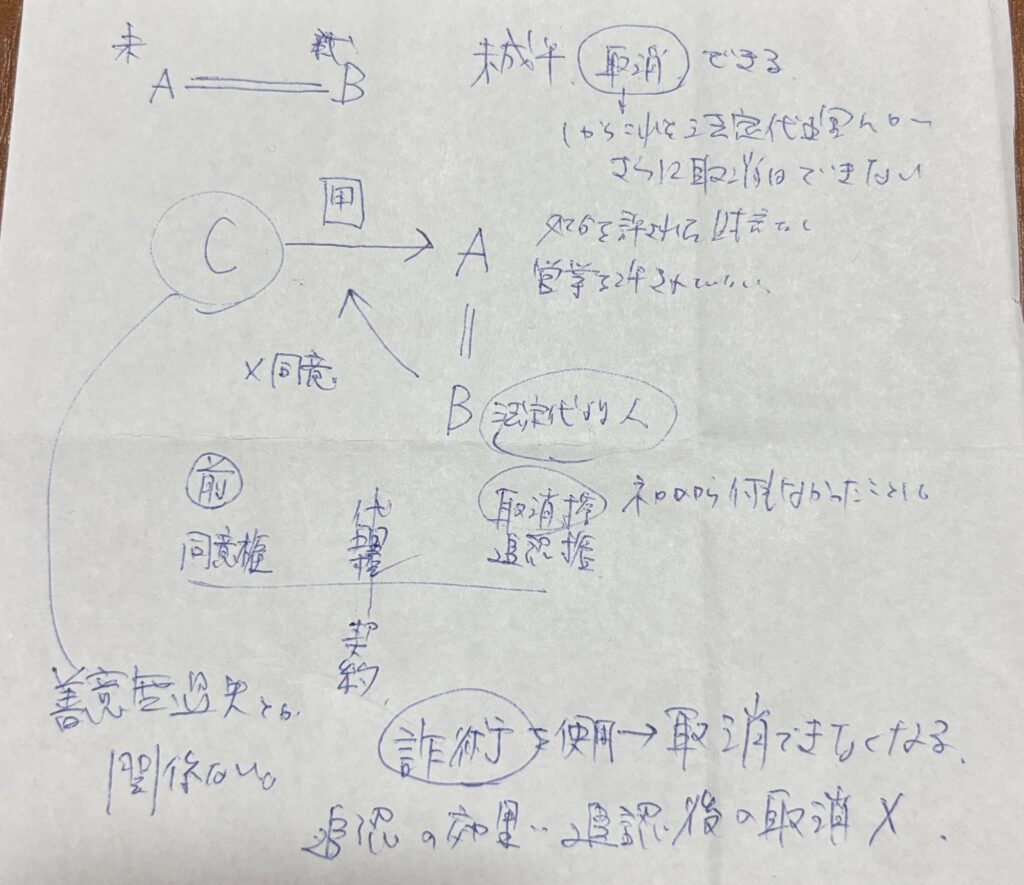 未
A B
未成年 取消 できる
しからこれを法定代理人が
さらに取消はできない
処分を許された財産でも
営業を許されていない
甲
C A
B 法定代理人
×同意
前
同意権
代理権
契約
取消権
追認権
から何もなかったことに
善意無過失とか
関係ない。
詐術 を使用→取消できなくなる.
追認の効果‥追認後の取消 ×.